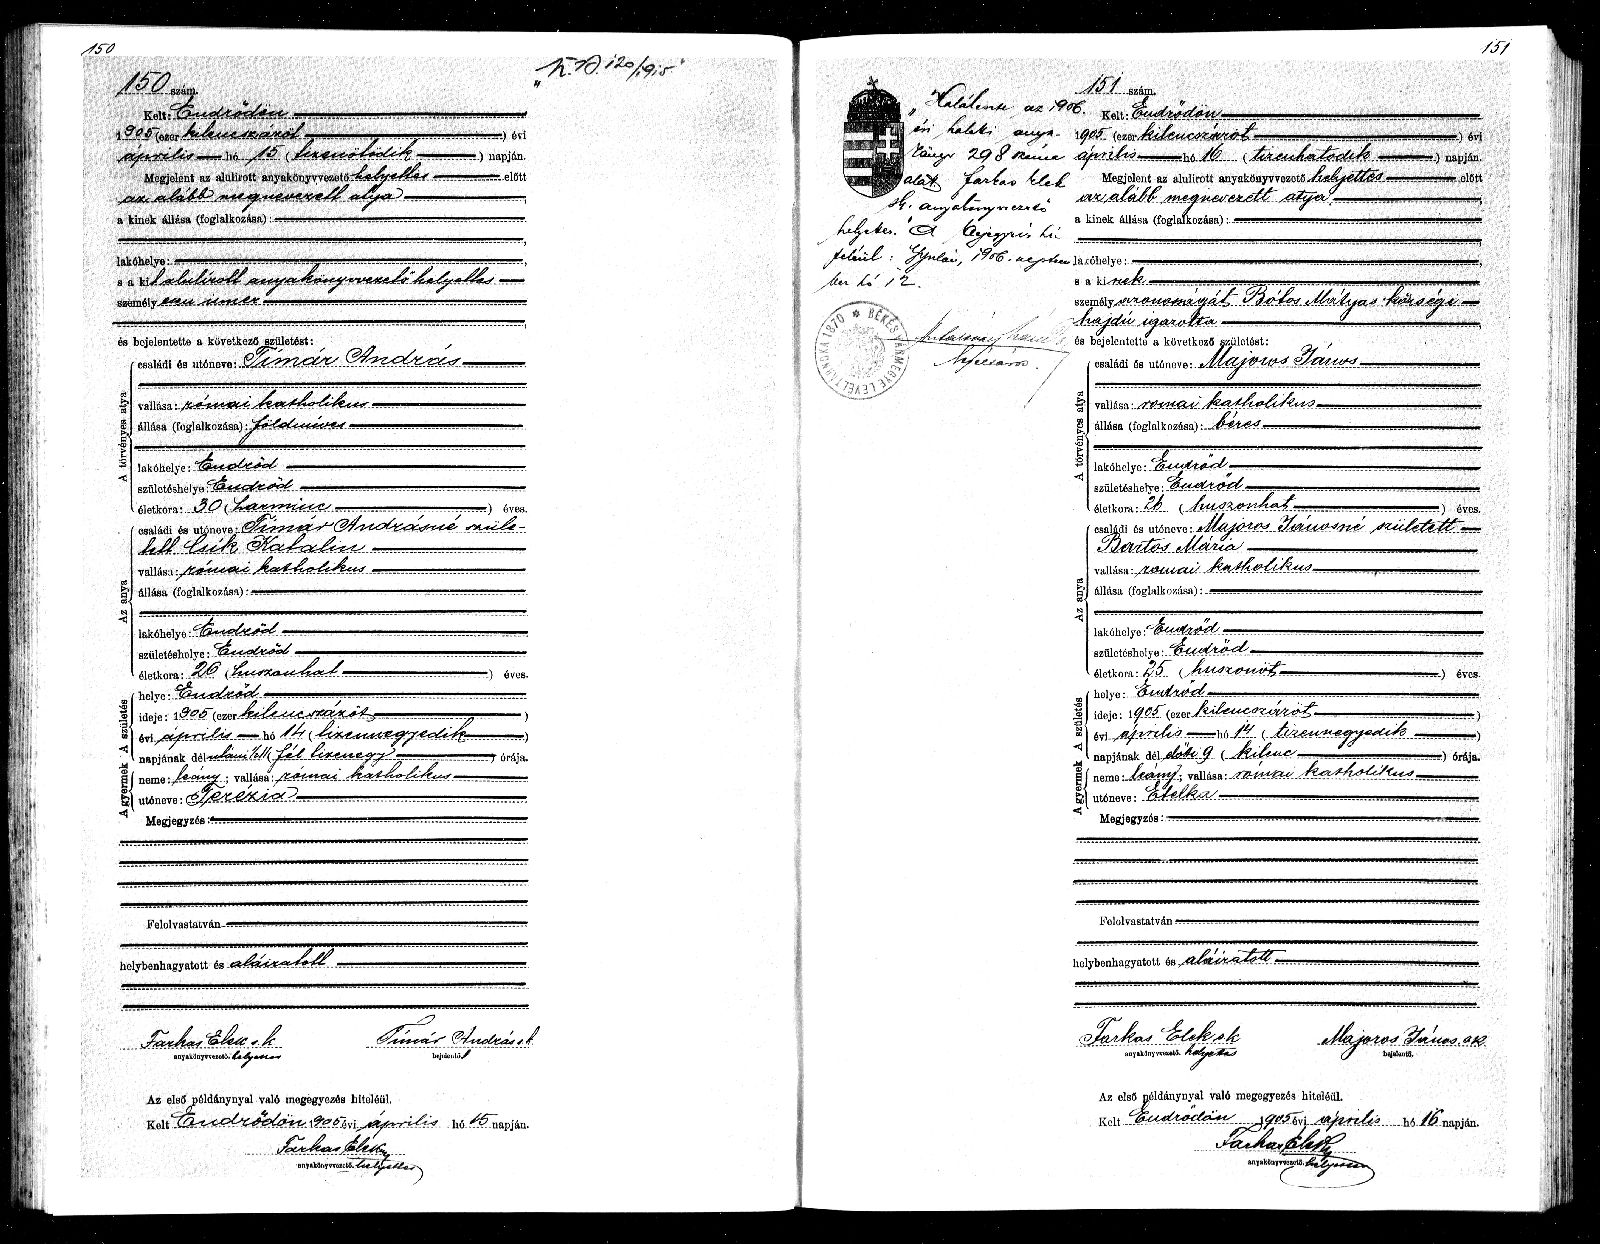 150
150 szám.
Kelt: Endrődön
1905 (ezer kilencszázöt) évi
április hó 15 (tizenötödik) napján.
Megjelent az alulirott anyakönyvvezető helyettes előtt
az alább megnevezett atya
a kinek állása (foglalkozása):
lakóhelye:
s a kit alulirott anyakönyvvezető helyettes
személyesen ismer
és bejelentette a következő születést:
A törvényes atya
családi és utóneve: Tímár András
vallása: római katholikus
állása (foglalkozása): földmives
lakóhelye: Endrőd
születéshelye: Endrőd
életkora: 30 (harminc) éves.
Az anya
családi és utóneve: Tímár Andrásné szüle-
tett Csik Katalin
vallása: római katholikus
állása (foglalkozása):
lakóhelye: Endrőd
születéshelye: Endrőd
életkora: 26 (huszonhat) éves.
A születés
helye: Endrőd
ideje: 1905 (ezer kilencszázöt)
évi április hó 14 (tizennegyedik)
napjának dél utáni (fél tizenegy) órája.
A gyermek
neme: leány; vallása: római katholikus
utóneve: Terézia
Megjegyzés:
Felolvastatván
helybenhagyatott és aláíratott
Farkas Elek s.k
anyakönyvvezető. helyettes
Tímár András s.k.
bejelentő.
Az első példánynyal való megegyezés hiteléül.
Kelt Endrődön 1905 évi április hó 15 napján.
Farkas Elek
anyakönyvvezető. helyettes
151
"Haláleset az 1906.
évi halotti anya-
könyv 298 száma
alatt Farkas Elek
sk. anyakönyvvezető
helyettes." A bejegyzés hi-
teléül: Gyulán, 1906. szeptem
ber hó 12.
BÉKÉSVÁRMEGYE LEVÉLTÁRNOKA 1870
151 szám.
Kelt: Endrődön
1905 (ezer kilencszázöt) évi
április hó 16 (tizenhatodik) napján.
Megjelent az alulirott anyakönyvvezető helyettes előtt
az alább megnevezett atya
a kinek állása (foglalkozása):
lakóhelye:
s a kinek
személyazonosságát Bótos Mátyás községi
hajdú igazolta
és bejelentette a következő születést:
A törvényes atya
családi és utóneve: Majoros János
vallása: római katholikus
állása (foglalkozása): béres
lakóhelye: Endrőd
születéshelye: Endrőd
életkora: 26 (huszonhat) éves.
Az anya
családi és utóneve: Majoros Jánosné született
Bartos Mária
vallása: római katholikus
állása (foglalkozása):
lakóhelye: Endrőd
születéshelye: Endrőd
életkora: 25 (huszonöt) éves.
A születés
helye: Endrőd
ideje: 1905 (ezer kilencszázöt)
évi április hó 14 (tizennegyedik)
napjának dél előtti 9 (kilenc) órája.
A gyermek
neme: leány; vallása: római katholikus
utóneve: Etelka
Megjegyzés:
Felolvastatván
helybenhagyatott és aláíratott
Farkas Elek sk
anyakönyvvezető. helyettes
Majoros János. sk
bejelentő.
Az első példánynyal való megegyezés hiteléül.
Kelt Endrődön 1905 évi április hó 16 napján.
Farkas Elek
anyakönyvvezető. helyettes